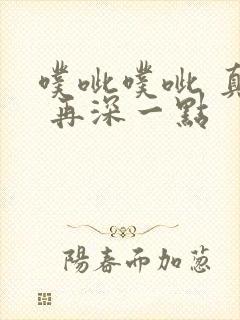 噗呲噗呲 真
再深一點
陽春而加蔥